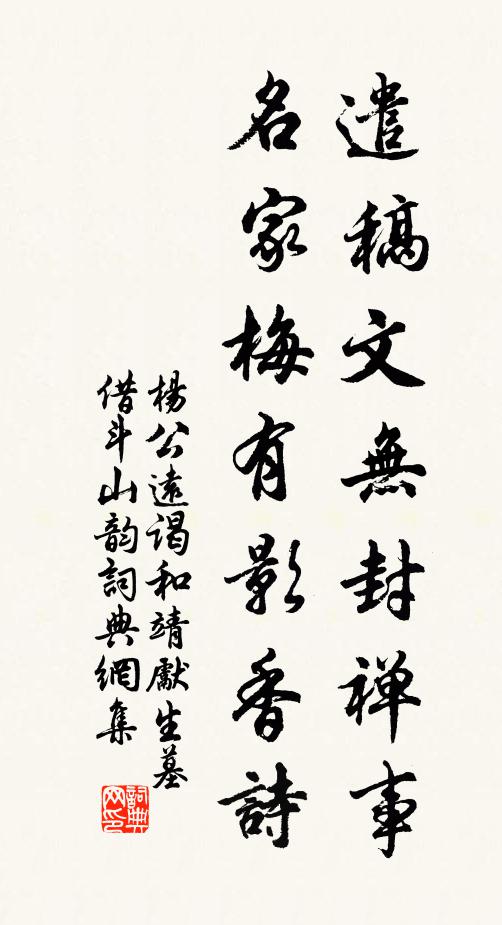 遺稿文無封禅事
名家梅有影香詩
楊公遠谒和靖處士墓
借斗山韵詞典網集
詞典网印